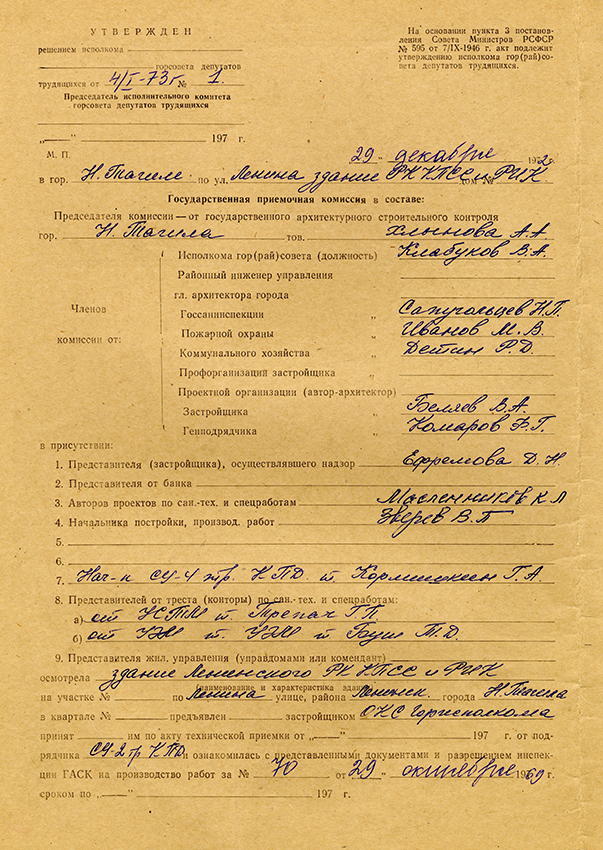 УТВЕРЖДЕН
решением исполкома
горсовета депутатов
трудящихся от 4/I-73г № 1.
Председатель исполнительного комитета
горсовета депутатов трудящихся
„—“ 197 г.
М. П.
На основании пункта 3 постанов-
ления Совета Министров РСФСР
№ 595 от 7/IX-1946 г. акт подлежит
утверждению исполкома гор(рай)со-
вета депутатов трудящихся.
29 декабря 1972г.
в гор. Н. Тагиле по ул. Ленина здание РК КПСС и РИК дом №
Государственная приемочная комиссия в составе:
Председателя комиссии — от государственного архитектурного строительного контроля
гор. Н. Тагила тов. Хлынова А.А
Членов
комиссии от:
Исполкома гор(рай)совета (должность) Клабуков В.А.
Районный инженер управления
гл. архитектора города
Госсанинспекции „ Н.П.
Пожарной охраны „ Иванов М. В.
Коммунального хозяйства „ Детин Р.Д.
Профорганизации застройщика „
Проектной организации (автор-архитектор)
Застройщика „ Беляев В.А.
Генподрядчика „ Комаров В.Г.
в присутствии:
1. Представителя (застройщика), осуществлявшего надзор Ефремова Д. Н.
2. Представителя от банка
3. Авторов проектов по сан.-тех. и спецработам Масленников К Л
4. Начальника постройки, производ. работ Зверев В.П
5.
6.
7. Нач-к СУ-4 тр. КПД. т Кормишкин Г. А
8. Представителей от треста (конторы) по сан.-тех. и спецработам:
а) от НСТМ т. Трепач Г.П.
б) от УЭМ т. УЭМ т Буш Т.Д.
9. Представителя жил. управления (управдомами или комендант)
осмотрела здание Ленинского РК КПСС и РИК
(наименование и характеристика здания)
на участке № по Ленина улице, района Ленинск. города Н. Тагила
в квартале № предъявлен застройщиком ОКС Горисполкома
принят им по акту технической приемки от „—“ 197 г. от под-
рядчика СУ-2 тр КПД и ознакомилась с представленными документами и разрешением инспек-
ции ГАСК на производство работ за № 70 от 29 октября 1969 г.
сроком по „—“ 197 г.